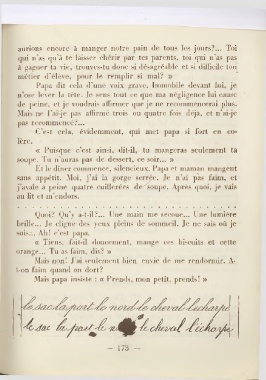 aurions encore à manger notre pain de tous les jours?... Toi
qui n'as qu'à te laisser chérir par tes parents, toi qui n'as pas
à gagner ta vie, trouves-tu donc si désagréable et si difficile ton
métier d'élève, pour le remplir si mal? »
Papa dit cela d'une voix grave. Immobile devant lui, je
n'ose lever la tête. Je sens tout ce que ma négligence lui cause
de peine, et je voudrais affirmer que je ne recommencerai plus.
Mais ne l'ai-je pas affirmé trois ou quatre fois déjà, et n'ai-je
pas recommencé?...
C'est cela, évidemment, qui met papa si fort en co-
lère.
« Puisque c'est ainsi, dit-il, tu mangeras seulement ta
soupe. Tu n'auras pas de dessert, ce soir... »
Et le dîner commence, silencieux. Papa et maman mangent
sans appétit. Moi, j'ai la gorge serrée. Je n'ai pas faim, et
j'avale à peine quatre cuillerées de soupe. Après quoi, je vais
au lit et m'endors.
Quoi? Qu'y a-t-il?... Une main me secoue... Une lumière
brille... Je cligne des yeux pleins de sommeil. Je ne sais où je
suis... Ah! c'est papa.
« Tiens, fait-il doucement, mange ces biscuits et cette
orange... Tu as faim, dis? »
Mais non! J'ai seulement bien envie de me rendormir. A-
t-on faim quand on dort?
Mais papa insiste : « Prends, mon petit, prends! »
le sac la port le nord le cheval l'écharpe
le sac la port le no le cheval l'écharpe
— 173 —